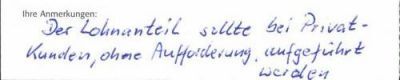 Ihre Anmerkungen:
Der Lohnanteil sollte bei Privat-
Kunden, ohne Aufforderung, aufgeführt
werden